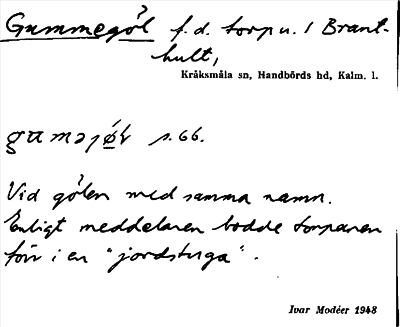 Gummegöl f.d. torp u. 1 Brant-
hult,
Kråksmåla sn, Handbörds hd, Kalm. l.
s. 66.
Vid gölen med samma namn.
Enligt meddelaren bodde torparen
förr i en "jordstuga".
Ivar Modéer 1948